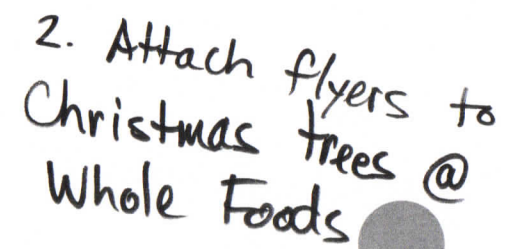 2. Attach flyers to
Christmas trees @
Whole Foods